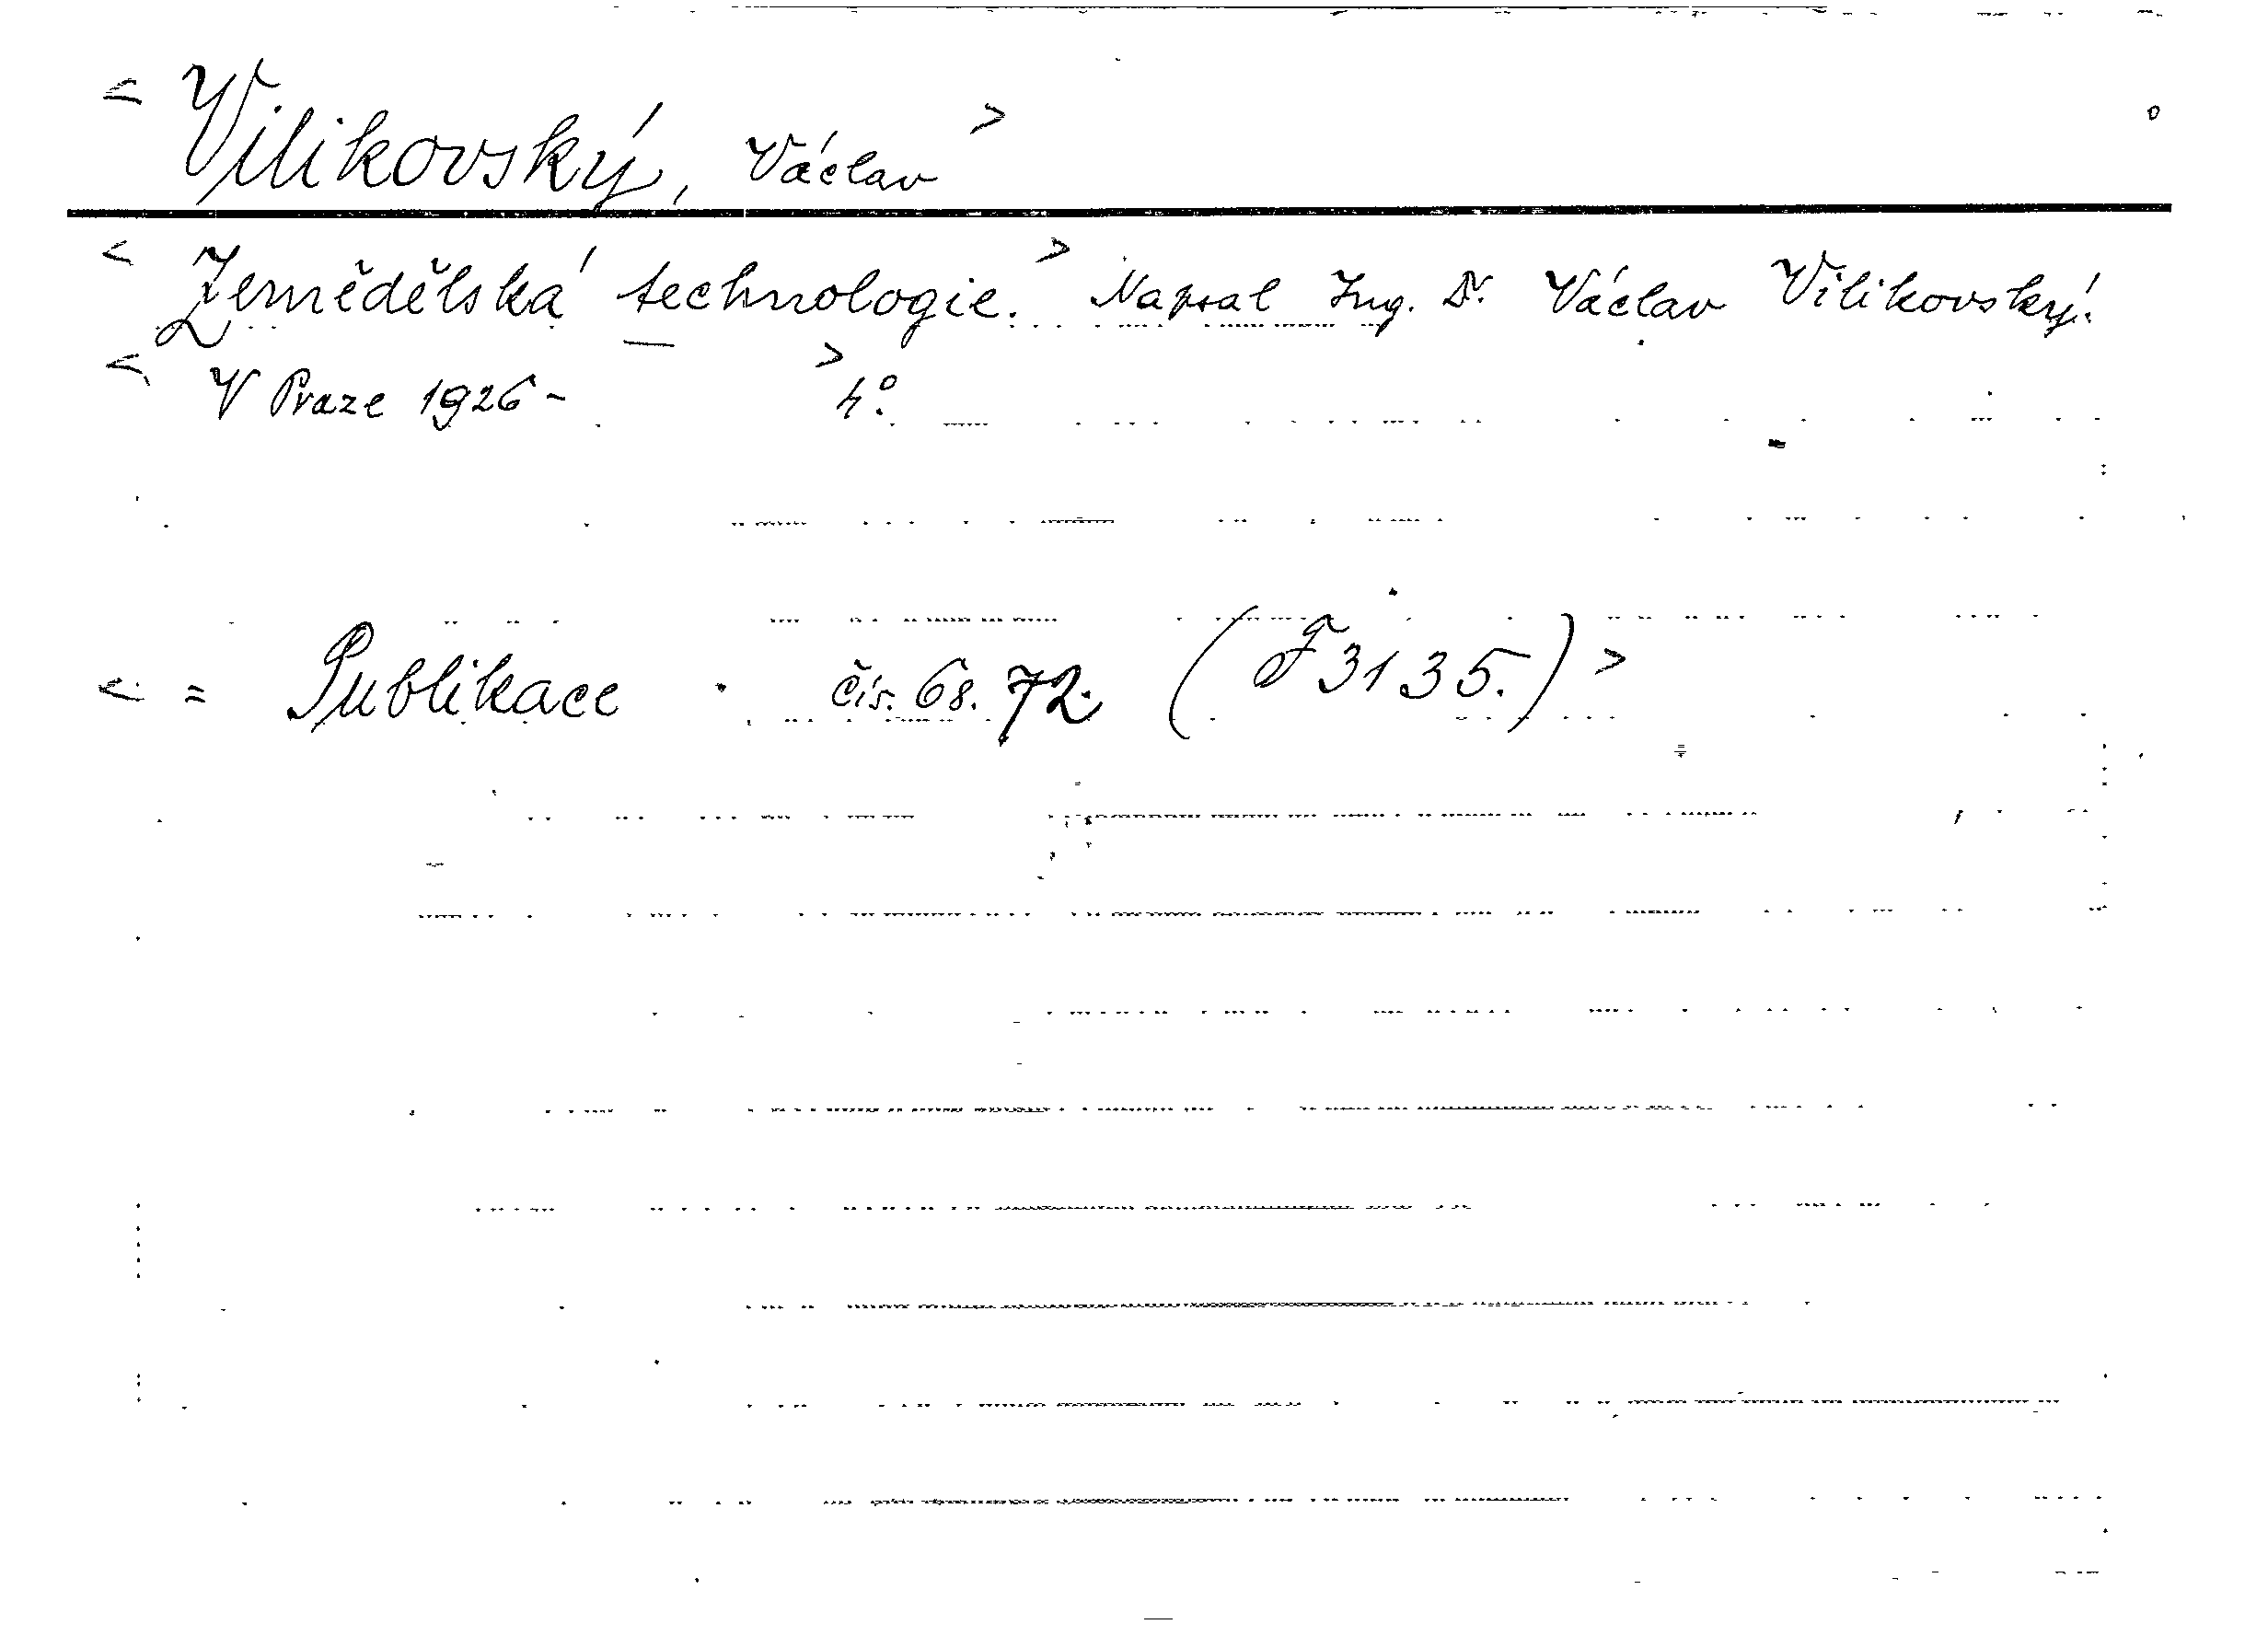 < Vilikovský, Václav >
< Zemědělská technologie. > Napsal Ing. Dr. Václav Vilikovský.
< V Praze 1926 - > 4°.
< = Publikace čís. 68. 72. (F 3135.) >